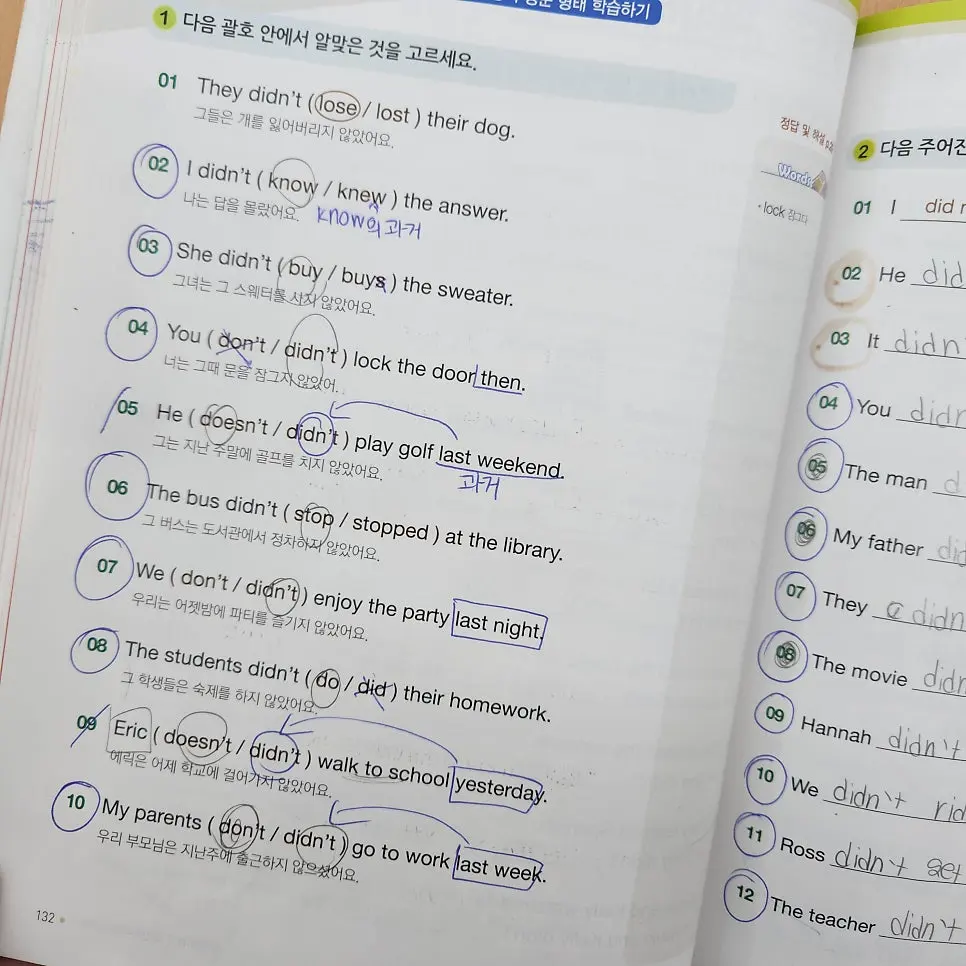 형태 학습하기
1 다음 괄호 안에서 알맞은 것을 고르세요.
01 They didn't ( lose / lost ) their dog.
그들은 개를 잃어버리지 않았어요.
02 I didn't ( know / knew ) the answer.
나는 답을 몰랐어요. know의 과거
03 She didn't ( buy / buys ) the sweater.
그녀는 그 스웨터를 사지 않았어요.
04 You ( don't / didn't ) lock the door then.
너는 그때 문을 잠그지 않았어.
05 He ( doesn't / didn't ) play golf last weekend.
그는 지난 주말에 골프를 치지 않았어요. 과거
06 The bus didn't ( stop / stopped ) at the library.
그 버스는 도서관에서 정차하지 않았어요.
07 We ( don't / didn't ) enjoy the party last night.
우리는 어젯밤에 파티를 즐기지 않았어요.
08 The students didn't ( do / did ) their homework.
그 학생들은 숙제를 하지 않았어요.
09 Eric ( doesn't / didn't ) walk to school yesterday.
에릭은 어제 학교에 걸어가지 않았어요.
10 My parents ( don't / didn't ) go to work last week.
우리 부모님은 지난주에 출근하지 않으셨어요.
132
정답 및 해설
Words
• lock 잠그다
2 다음 주어진
01 I did
02 He did
03 It didn
04 You didn
05 The man
06 My father
07 They didn
08 The movie didn
09 Hannah didn't
10 We didn't rid
11 Ross didn't get
12 The teacher didn't